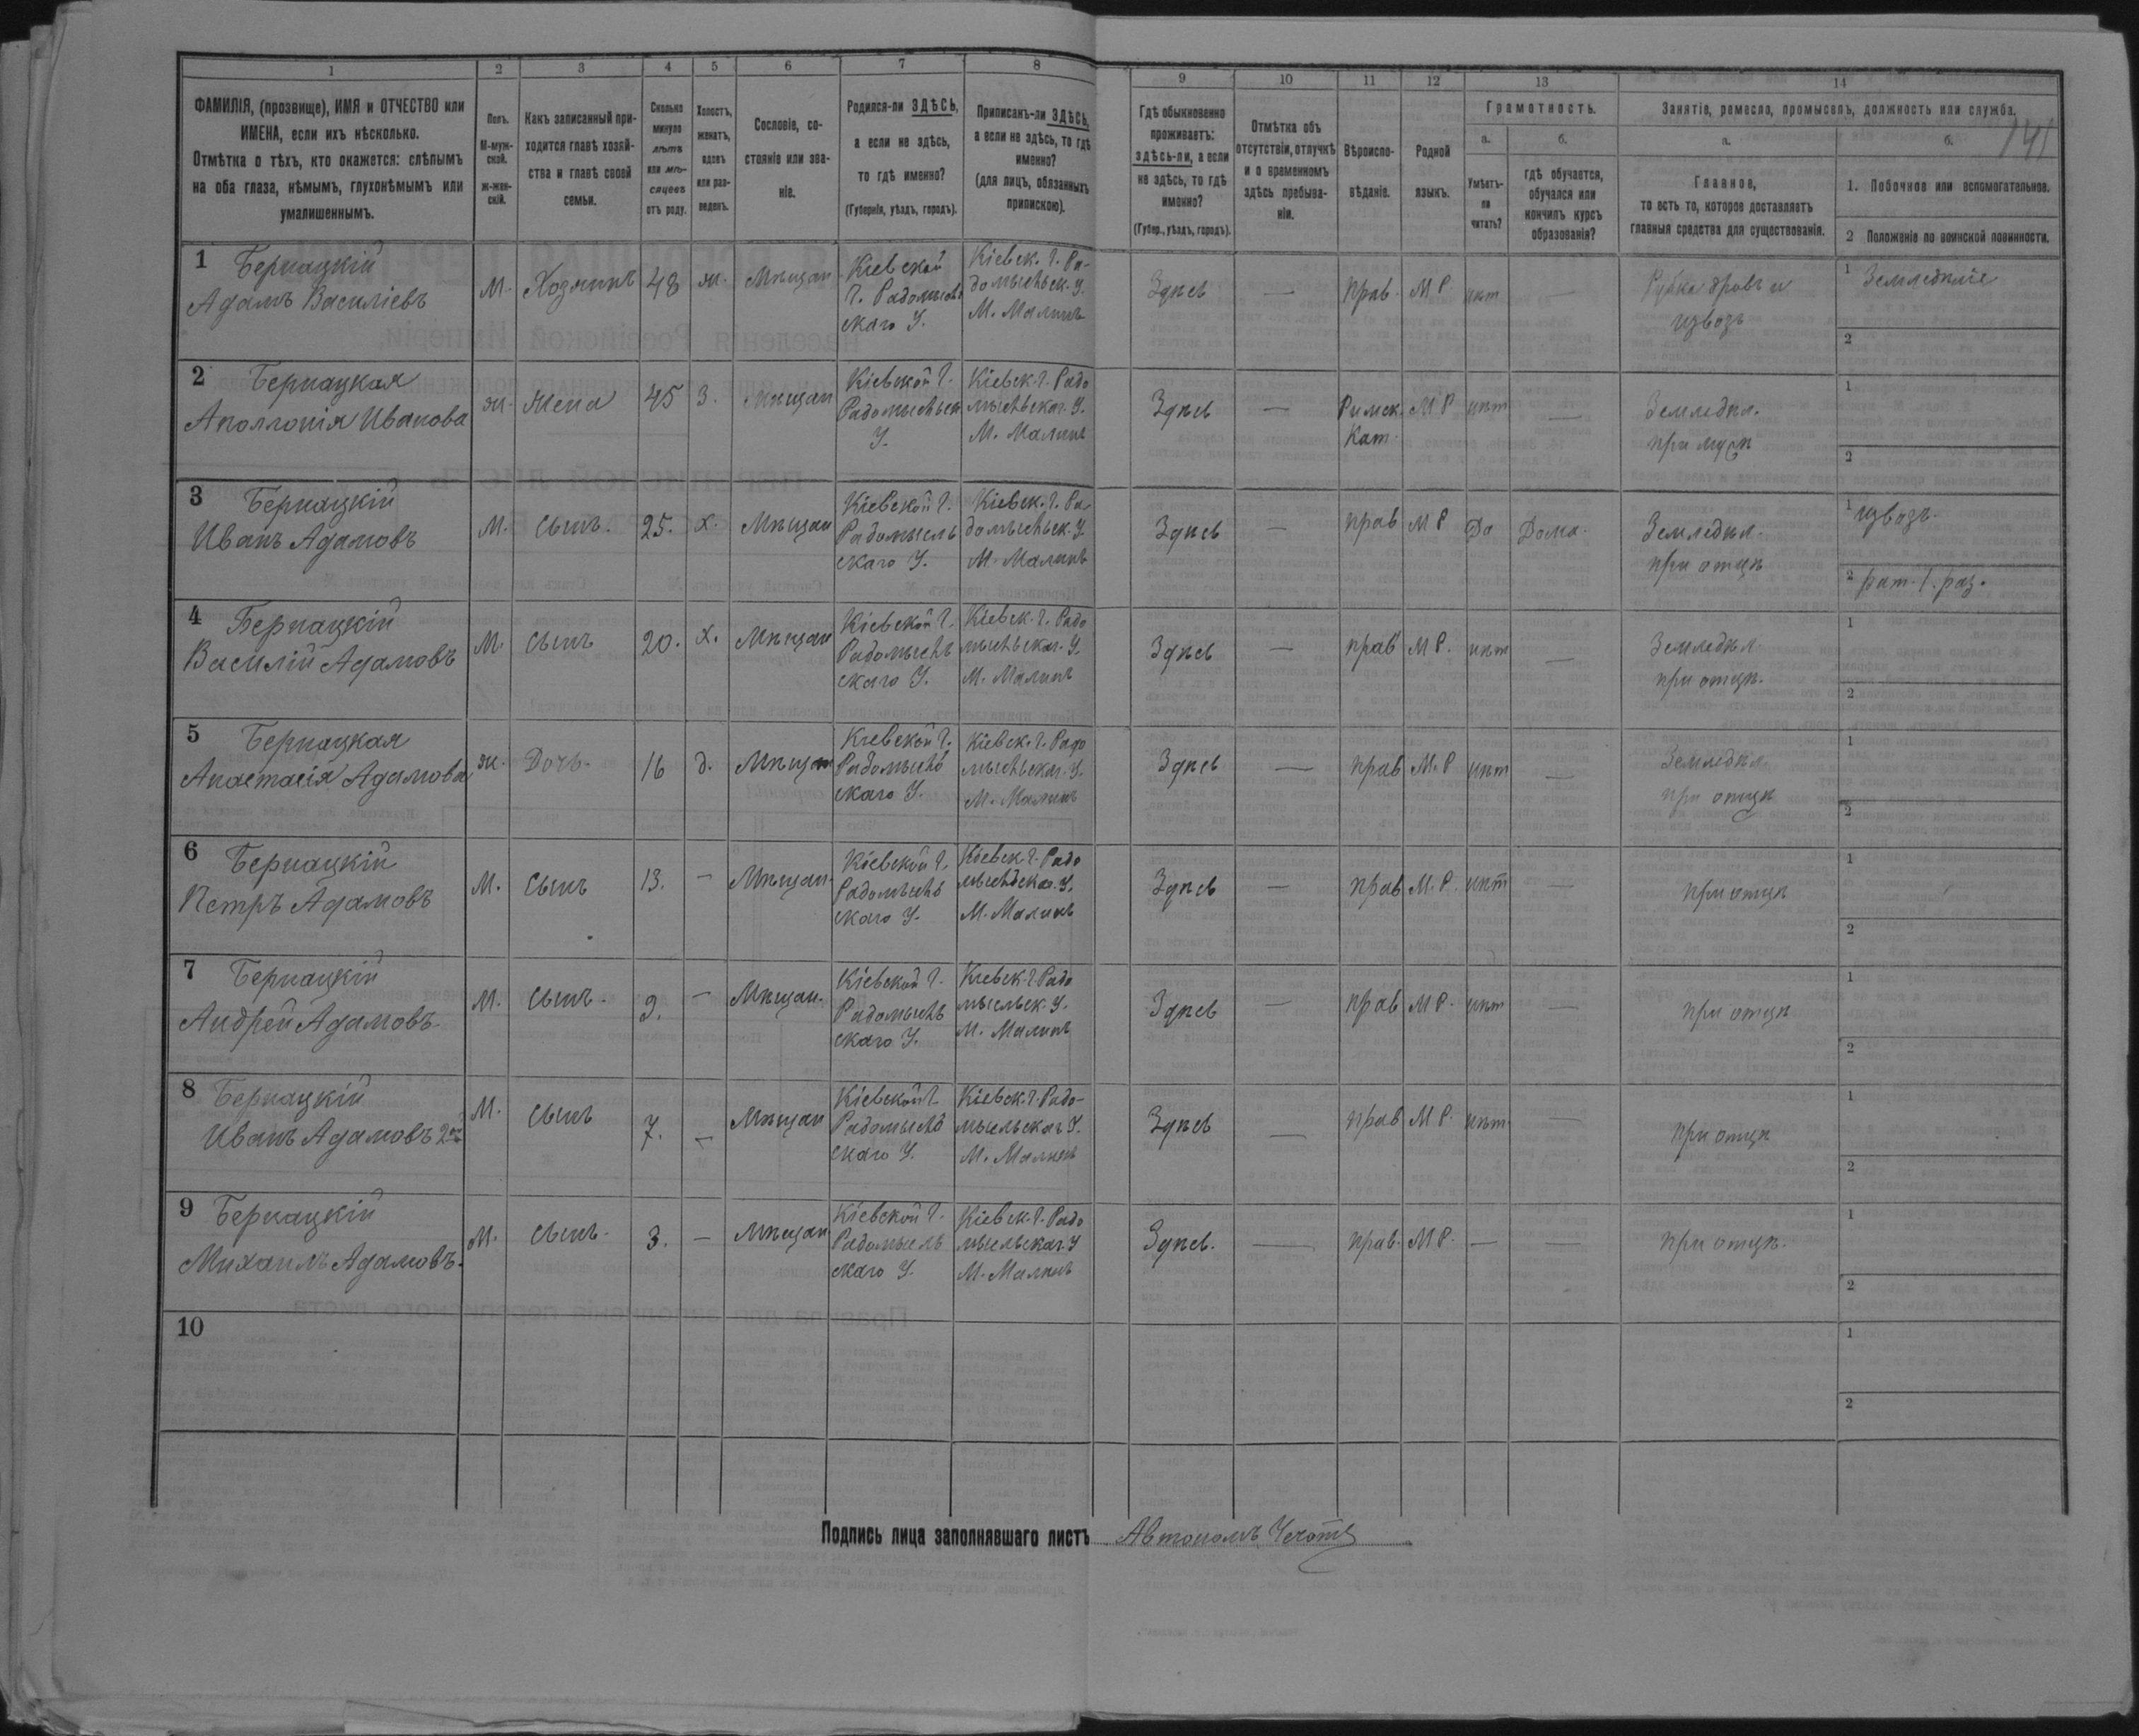 1 2 3 4 5 6 7 8 9 10 11 12 13 14
ФАМИЛІЯ, (прозвище), ИМЯ и ОТЧЕСТВО или
ИМЕНА, если ихъ нѣсколько.
Отмѣтка о тѣхъ, кто окажется: слѣпымъ
на оба глаза, нѣмымъ, глухонѣмымъ или
умалишеннымъ.
Полъ.
М-муж-
ской.
ж-жен-
скій.
Какъ записанный при-
ходится главѣ хозяй-
ства и главѣ своей
семьи.
Сколько
минуло
лѣтъ
или мѣ-
сяцевъ
отъ роду.
Холостъ,
женатъ,
вдовъ
или раз-
веденъ.
Сословіе, со-
стояніе или зва-
ніе.
Родился-ли ЗДѢСЬ,
а если не здѣсь,
то гдѣ именно?
(Губернія, уѣздъ, городъ).
Приписанъ-ли ЗДѢСЬ,
а если не здѣсь, то гдѣ
именно?
(для лицъ, обязанныхъ
припискою).
Гдѣ обыкновенно
проживаетъ:
здѣсь-ли, а если
не здѣсь, то гдѣ
именно?
(Губер., уѣздъ, городъ).
Отмѣтка объ
отсутствіи, отлучкѣ
и о временномъ
здѣсь пребыва-
ніи.
Вѣроиспо-
вѣданіе.
Родной
языкъ.
Грамотность.
а.
Умѣетъ-
ли
читать?
б.
гдѣ обучается,
обучался или
кончилъ курсъ
образованія?
Занятіе, ремесло, промыселъ, должность или служба.
141
а.
Главное,
то есть то, которое доставляетъ
главныя средства для существованія.
б.
1. Побочное или вспомогательное.
2 Положеніе по воинской повинности.
1 Бернацкій
Адамъ Василіевъ
М. Хозяинъ 48 ж. Мѣщан
Кіевской
Г. Радомысль
скаго У.
Кіевск. Г. Ра-
домысльск. У.
М. Малинъ
Здѣсь — прав. М Р. нѣт —
Рубка дровъ и
извозъ
1 Земледѣліе
2
2 Бернацкая
Аполлонія Иванова
ж. Жена 45 З. Мѣщан
Кіевской Г.
Радомысльск
У.
Кіевск. Г. Радо
мысльскаг. У.
М. Малинъ
Здѣсь — Римск.
Кат.
М Р нѣт —
Земледѣл.
при мужѣ
1
2
3 Бернацкій
Иванъ Адамовъ
М. сынъ. 25. х. Мѣщан
Кіевской Г.
Радомысль
скаго У.
Кіевск. Г. Ра
домысльск. У.
М. Малинъ
Здѣсь — прав М Р До Дома.
Земледѣл.
при отцѣ
1 извозъ.
2 рат. 1. раз.
4 Бернацкій
Василій Адамовъ
М. сынъ 20. х. Мѣщан
Кіевской Г.
Радомысль
скаго У.
Кіевск. Г. Радо
мысльскаг. У.
М. Малинъ
Здѣсь — прав М Р. нѣт —
Земледѣл.
при отцѣ.
1
2
5 Бернацкая
Анастасія Адамова
ж. Дочь. 16 д. Мѣщан
Кіевской Г.
Радомысль
скаго У.
Кіевск. Г. Радо
мысльскаг. У.
М. Малинъ
Здѣсь — прав М. Р нѣт —
Земледѣл.
при отцѣ
1
2
6 Бернацкій
Петръ Адамовъ
М. сынъ 13. — Мѣщан.
Кіевской Г.
Радомысль
скаго У.
Кіевск. Г. Радо
мысльска. У.
М. Малинъ
Здѣсь — прав М. Р. нѣт —
при отцѣ
1
2
7 Бернацкій
Андрей Адамовъ
М. сынъ. 9. — Мѣщан.
Кіевской Г.
Радомысль
скаго У.
Кіевск. Г. Радо
мысльск. У.
М. Малинъ
Здѣсь — прав М Р. нѣт —
при отцѣ
1
2
8 Бернацкій
Иванъ Адамовъ 2й
М. сынъ 7. — Мѣщан
Кіевской Г.
Радомысль
скаго У.
Кіевск. Г. Радо-
мысльскаг У.
М. Малинъ
Здѣсь — прав М Р. нѣт. —
при отцѣ
1
2
9 Бернацкій
Михаилъ Адамовъ.
М. сынъ. 3. — Мѣщан
Кіевской Г.
Радомысль
скаго У.
Кіевск. Г. Радо
мысльскаг. У
М. Малинъ
Здѣсь. — прав. М Р. — —
при отцѣ.
1
2
10
1
2
Подпись лица заполнявшаго листъ Автономъ